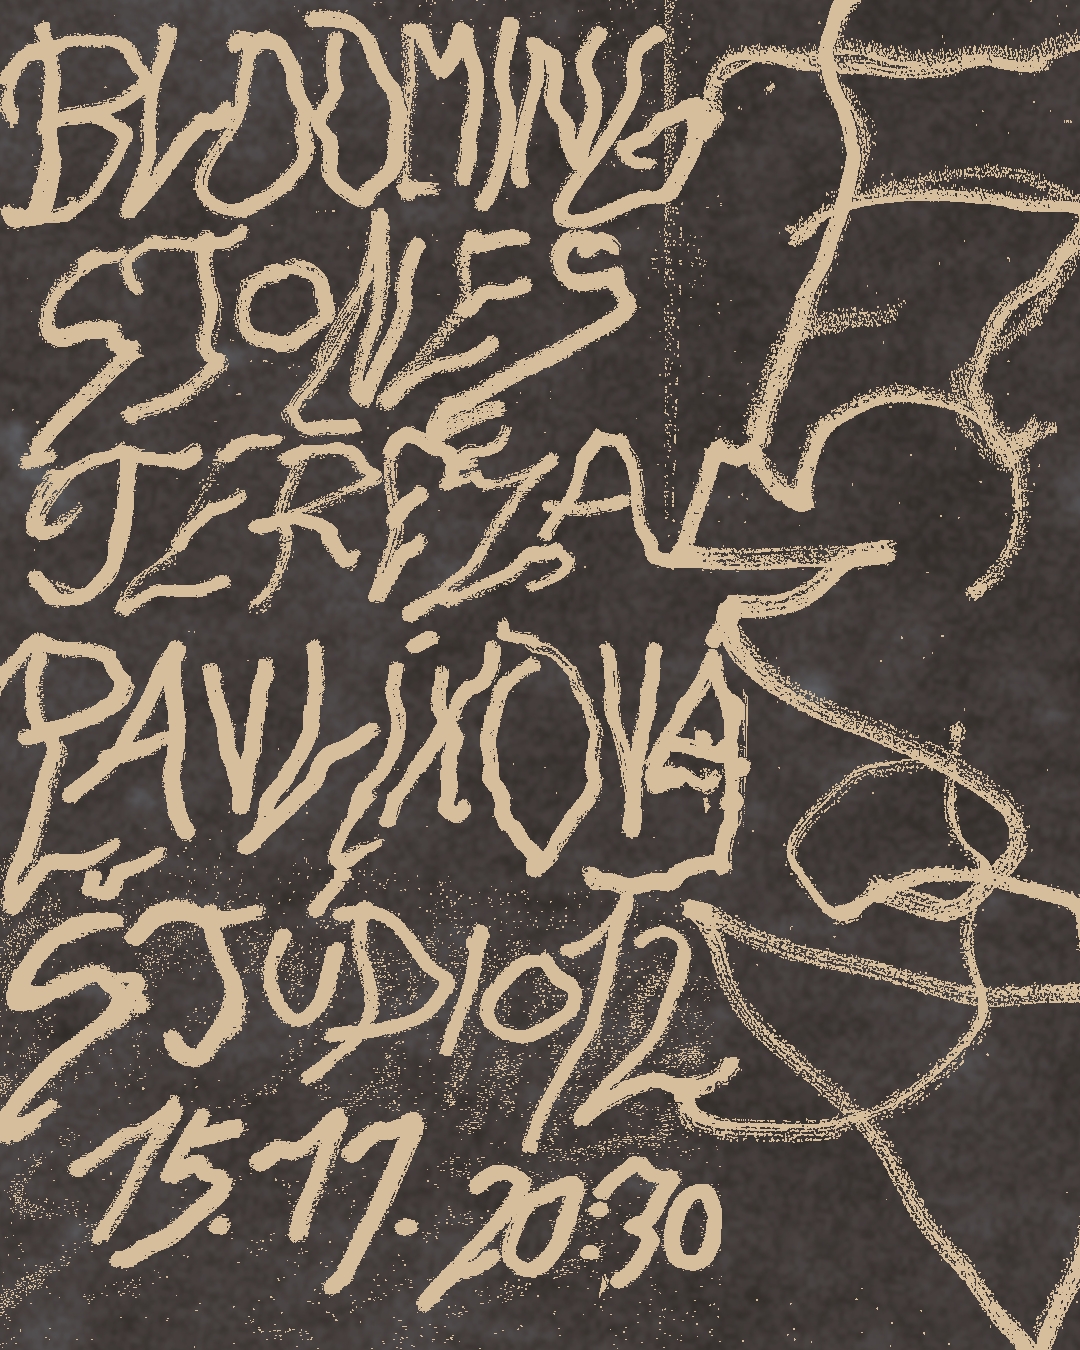 BLOOMING
STONES
TEREZA
PAVLÍKOVÁ
STUDIO 12
15. 17. 20:30